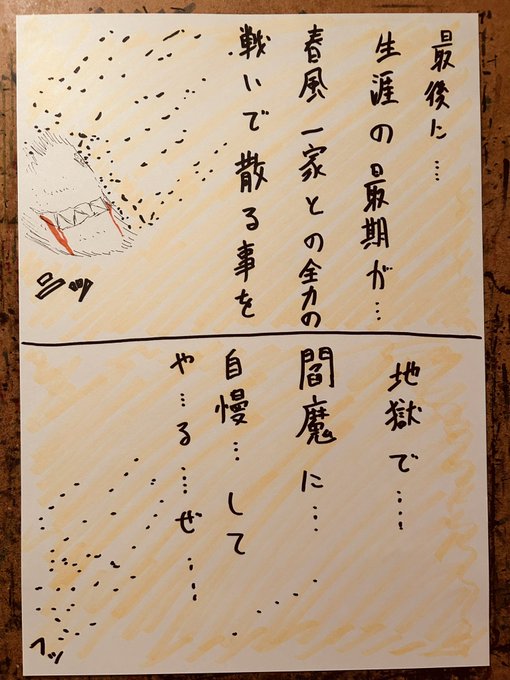 最後に‥‥
生涯の最期が…
春風一家との全力の
戦いで散る事を
シッ
地獄で‥‥
閻魔に…
自慢…して
や…る‥‥ぜ‥‥
フッ